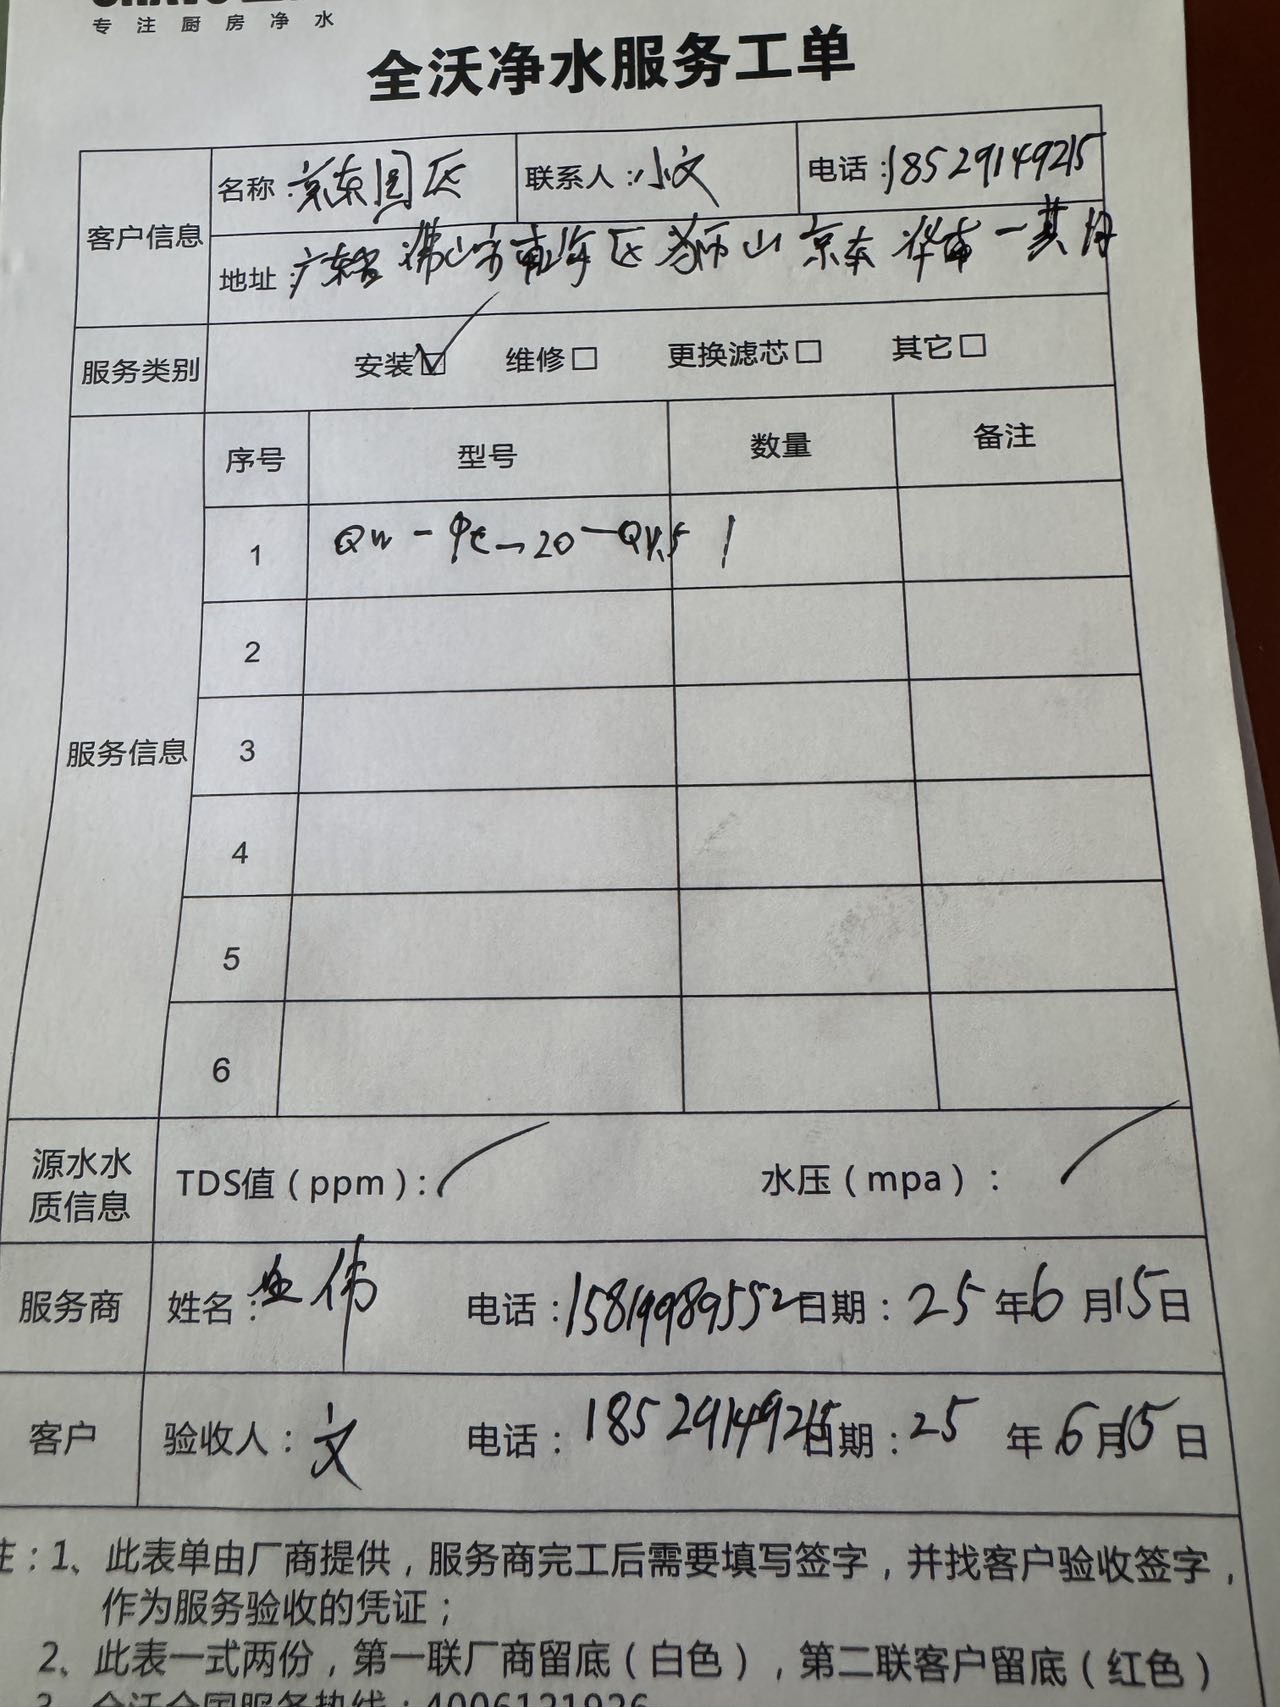 专注厨房净水
全沃净水服务工单
客户信息
名称：京东园区 联系人：小文 电话：18529149215
地址：广东省佛山市南海区狮山京东华南一期
服务类别 安装☑ 维修□ 更换滤芯□ 其它□
服务信息
序号 型号 数量 备注
1 1
2
3
4
5
6
源水水质信息 TDS值（ppm）： 水压（mpa）：
服务商 姓名： 伟 电话：15819989552 日期：25年6月15日
客户 验收人：文 电话：18529149215 日期：25年6月15日
注：1、此表单由厂商提供，服务商完工后需要填写签字，并找客户验收签字，
作为服务验收的凭证；
2、此表一式两份，第一联厂商留底（白色），第二联客户留底（红色）
3、全沃全国服务热线：4006121926